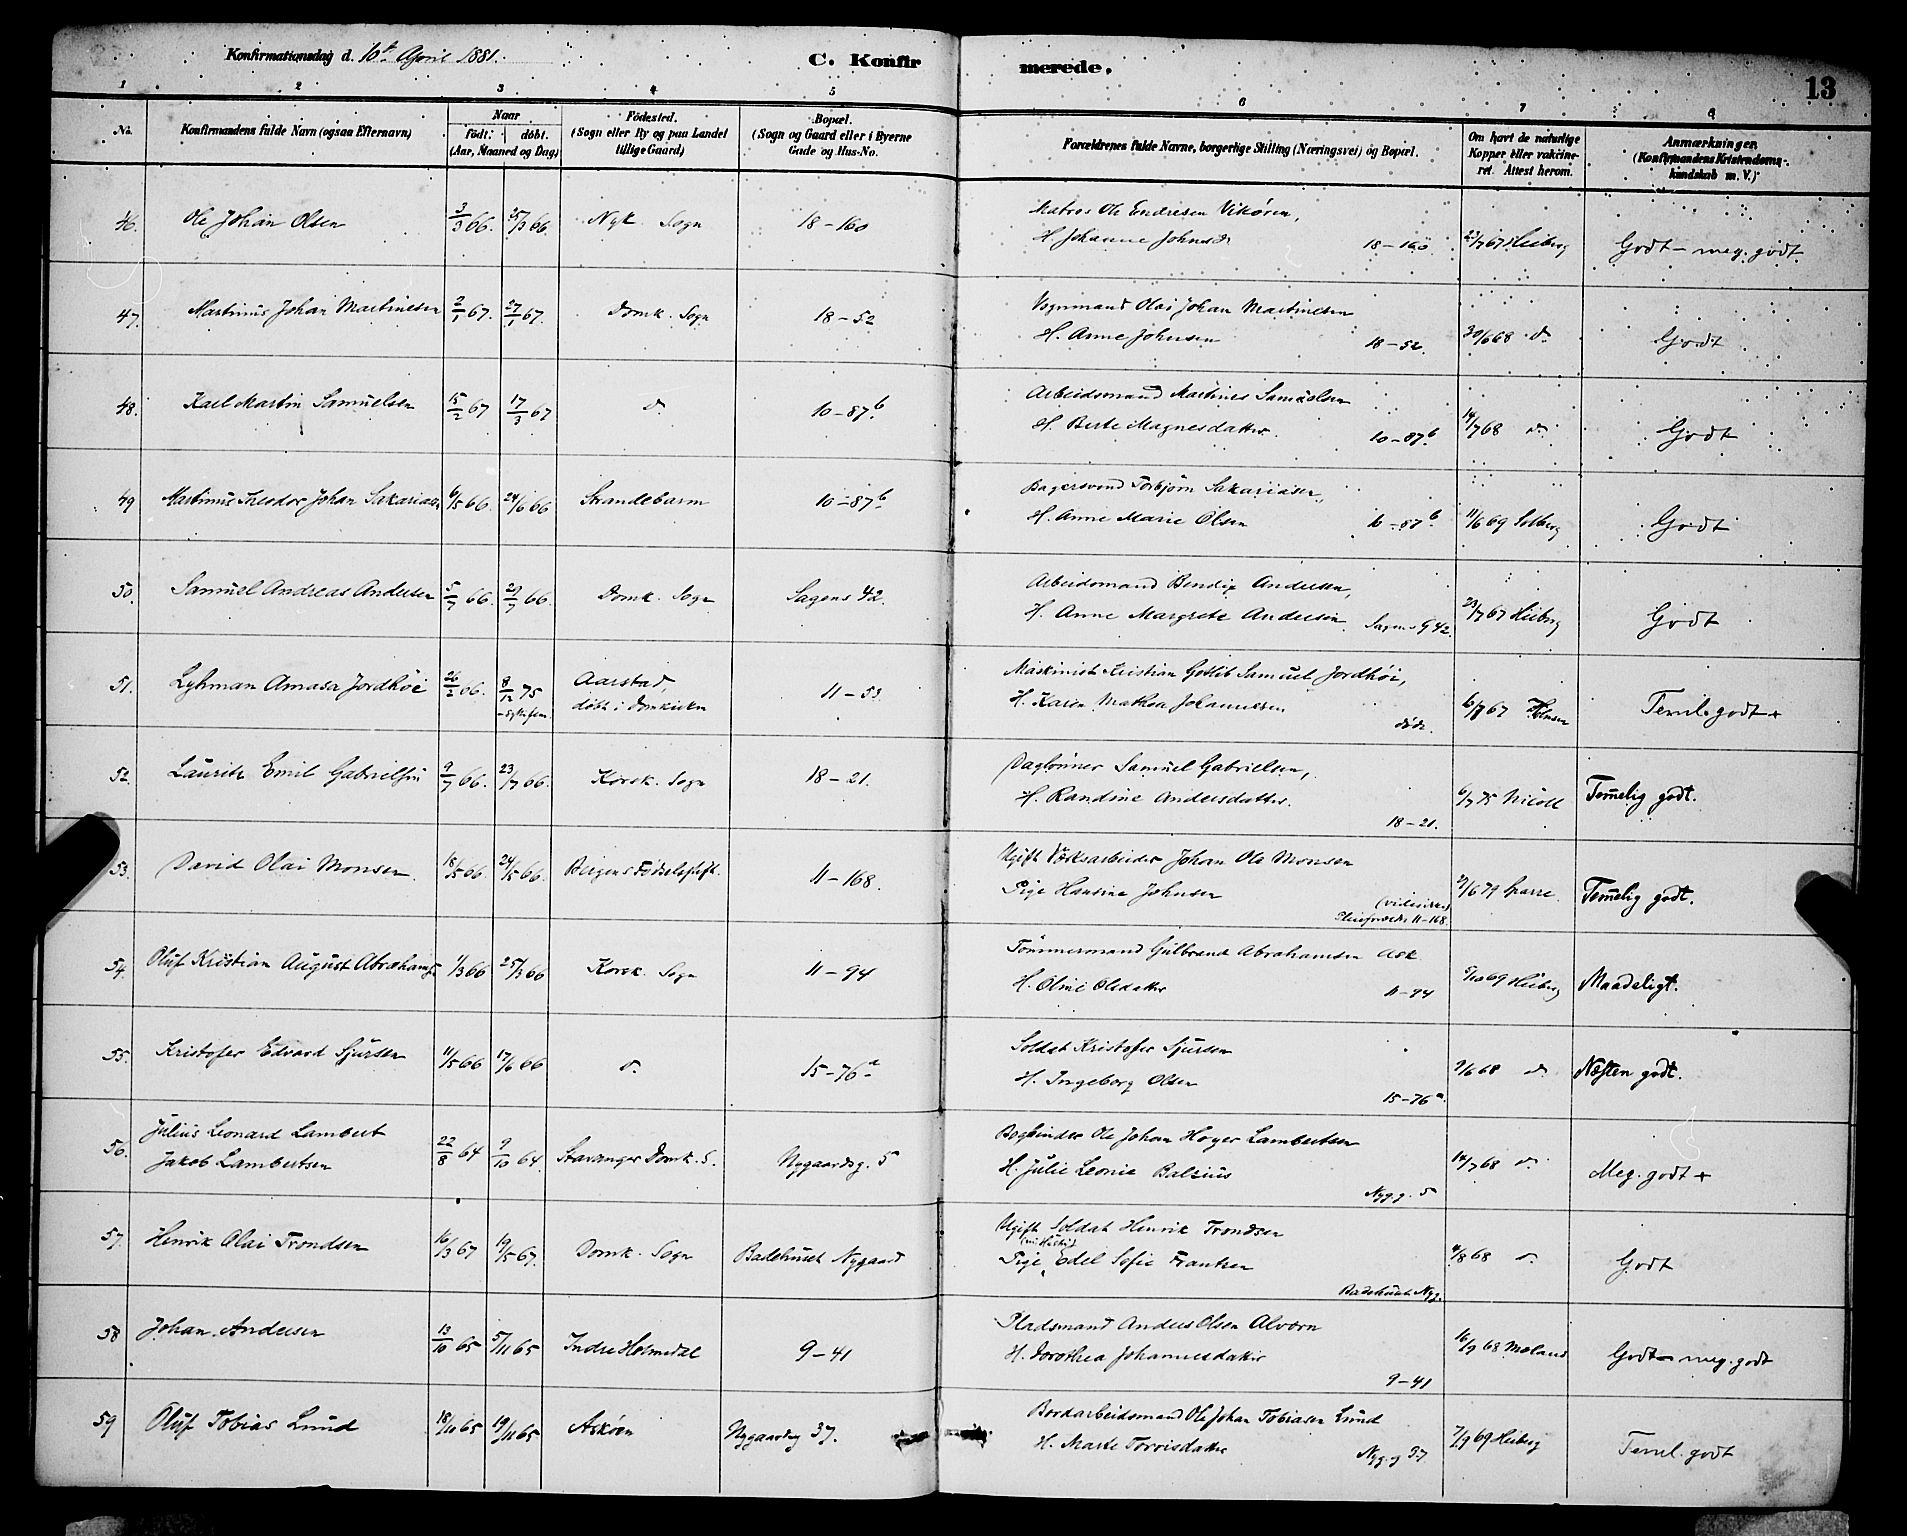 Konfirmationsdag d. 10de April 1881.
C. Konfirmerede.
13
1 2 3 4 5 6 7 8
No.
Konfirmandens fulde Navn (ogsaa Efternavn)
Naar
födt. döbt.
(Aar, Maaned og Dag)
Födested.
(Sogn eller By og paa Landet
tillige Gaard)
Bopæl.
(Sogn og Gaard eller i Byerne
Gade og Hus-No.
Forældrenes fulde Navne, borgerlige Stilling (Næringsvei) og Bopæl.
Om havt de naturlige
Kopper eller vakcine-
ret. Attest herom.
Anmærkninger.
(Konfirmandens Kristendoms-
kundskab m. V.)
46. Ole Johan Olsen 3/3 66. 25/3 66 Nyk. Sogn 18-160
Matros Ole Endresen Vikören,
H. Johanne Johnsd. 18-160 23/7 67 Heiberg Godt - meg. godt.
47. Martinus Johan Martinesen 2/1 67. 27/1 67. Domk. Sogn 18-52
Vognmand Olai Johan Martinesen
H. Anne Johnsen 18-52. 30/6 68 do Godt
48. Karl Martin Samuelsen 15/2 67 17/3 67 do 10-87b
Arbeidsmand Martines Samuelsen
H. Berte Magnesdatter. 10-87b. 14/7 68 do Godt
49 Martinus Theodor Johan Sakariasen 6/5 66. 24/6 66 Strandebarm 10-87b
Bagersvend Torbjørn Sakariasen,
H. Anne Marie Olsen 10-87b. 11/6 69 Solberg Godt
50. Samuel Andreas Andersen 5/7 66. 29/7 66. Domk. Sogn Sagens 42.
Arbeidsmand Bendix Andersen,
H. Anne Margrete Andersen Sagens G 42 23/7 67 Heiberg Godt
51. Lyhman Amasa Jordhöi 26/2 66. 8/12 75 Aarstad, 11-53
döbt i Domkirken
Maskinist Kristian Gotlib Samuel Jordhöi,
H. Karen Mathea Johannesen död. 6/8 67 Teml. godt +
52. Lauritz Emil Gabrielsen 9/7 66. 23/7 66. Korsk. Sogn 18-21.
Daglönner Samuel Gabrielsen,
H. Randine Andersdatter. 18-21. 6/7 75 Nicoll Temelig godt.
53. David Olai Monsen. 18/5 66 24/5 66. Bergens Födselsstift. 11-168.
Ugift Værksarbeider Johan Ole Monsen
Pige Hansine Johnsen
11-168. Sparre. Temelig godt.
54. Oluf Kristian August Abrahamsen 1/3 66 25/3 66 Korsk. Sogn 11-94
Tömmermand Gulbrand Abrahamsen Ask
H. Oline Olsdatter 11-94 5/10 69 Heiberg Maadeligt.
55. Kristofer Edvard Sjursen 11/5 66 17/6 66 do 15-76a
Soldat Kristofer Sjursen
H. Ingeborg Olsen 15-76a. 9/6 68 do Næsten godt.
56. Julius Leonard Lambert
Jakob Lambertsen 22/8 64 9/10 64. Stavanger Domk. S. Nygaardsg. 5
Bogbinder Ole Johan Höyer Lambertsen
H. Julie Leonie Balzius Nyg.g. 5 14/7 68 do Meg. godt +
57. Henrik Olai Trondsen 16/3 67 19/5 67. Domk. Sogn Badehuset Nygaard
Ugift Soldat Henrik Trondsen
Pige Edel Sofie Frantzen
Badehuset Nyg. 4/8 68 do Godt
58 Johan Andersen 13/10 65 5/11 65 Indre Holmedal 9-41
Pladsmand Anders Olsen Alværn
H. Dorothea Johannesdatter 9-41 16/9 68 Moland Godt - meg. godt
59 Oluf Tobias Lund 18/10 65 19/11 65 Askøen Nygaardsg 37.
Bordarbeidsmand Ole Johan Tobiasen Lund
H. Marte Torrisdatter Nyg.g 37. 7/9 69 Heiberg Teml. godt